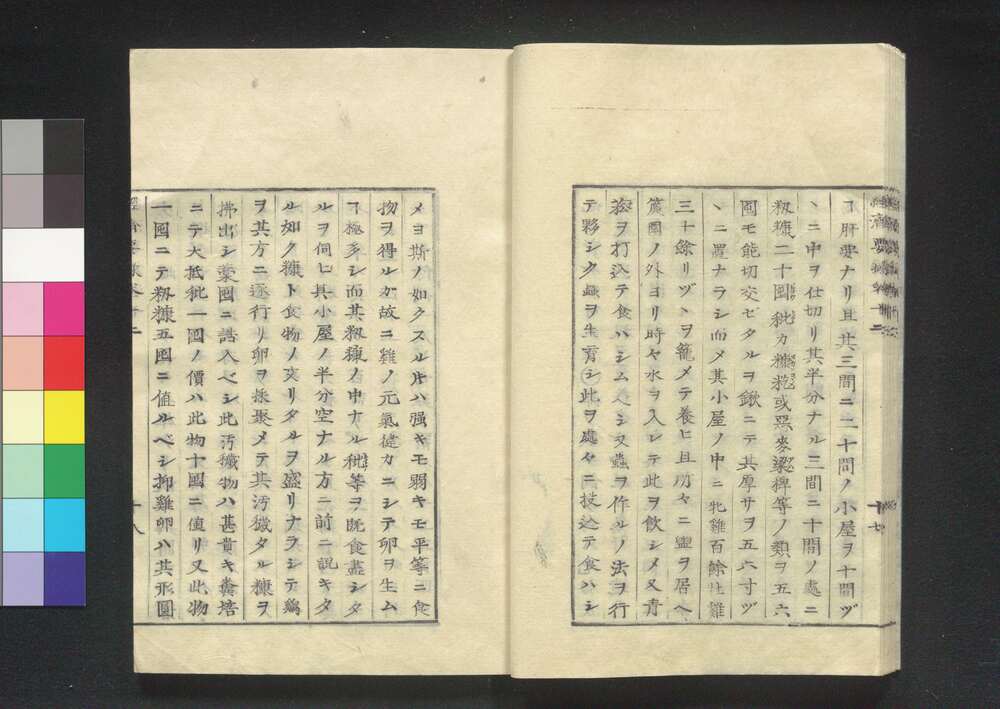 ヿ肝要ナリ且其三間ニ二十間ノ小屋ヲ十間ヅ
ヽニ中ヲ仕切リ其半分ナル三間ニ十間ノ處ニ
籾糠二十圓粃カ糠粃或黑麥粱稗等ノ類ヲ五六
圓モ能切交ゼタルヲ鍬ニテ其厚サヲ五六寸ヅ
ヽニ置ナラシ而メ其小屋ノ中ニ牝雞百餘牡雞
三十餘リヅヽヲ籠メテ養ヒ且所々ニ盥ヲ居ヘ
簀圍ノ外ヨリ時々水ヲ入レテ此ヲ飲シメ又青
菘ヲ打込テ食ハシムベシ又蟲ヲ作ルノ法ヲ行
テ夥シク蟲ヲ生育シ此ヲ處々ニ投込テ食ハシ
十七
メヨ斯ノ如クスル片ハ强キモ弱キモ平等ニ食
物ヲ得ルガ故ニ雞ノ元氣健カニシテ卵ヲ生ム
ヿ極多シ而其籾糠ノ中ナル粃等ヲ既食盡シタ
ルヲ伺ヒ其小屋ノ半分空ナル方ニ前ニ説キタ
ル如ク糠ト食物ノ交リタルヲ盛リナラシテ鷄
ヲ其方ニ逐行リ卵ヲ採聚メテ其汚穢タル糠ヲ
拂出シ糞圓ニ誥入ベシ此汚穢物ハ甚貴キ糞培
ニテ大抵粃一圓ノ價ハ此物十圓ニ値リ又此物
一圓ニテ籾糠五圓ニ値ルベシ抑雞卵ハ其形圓
十八